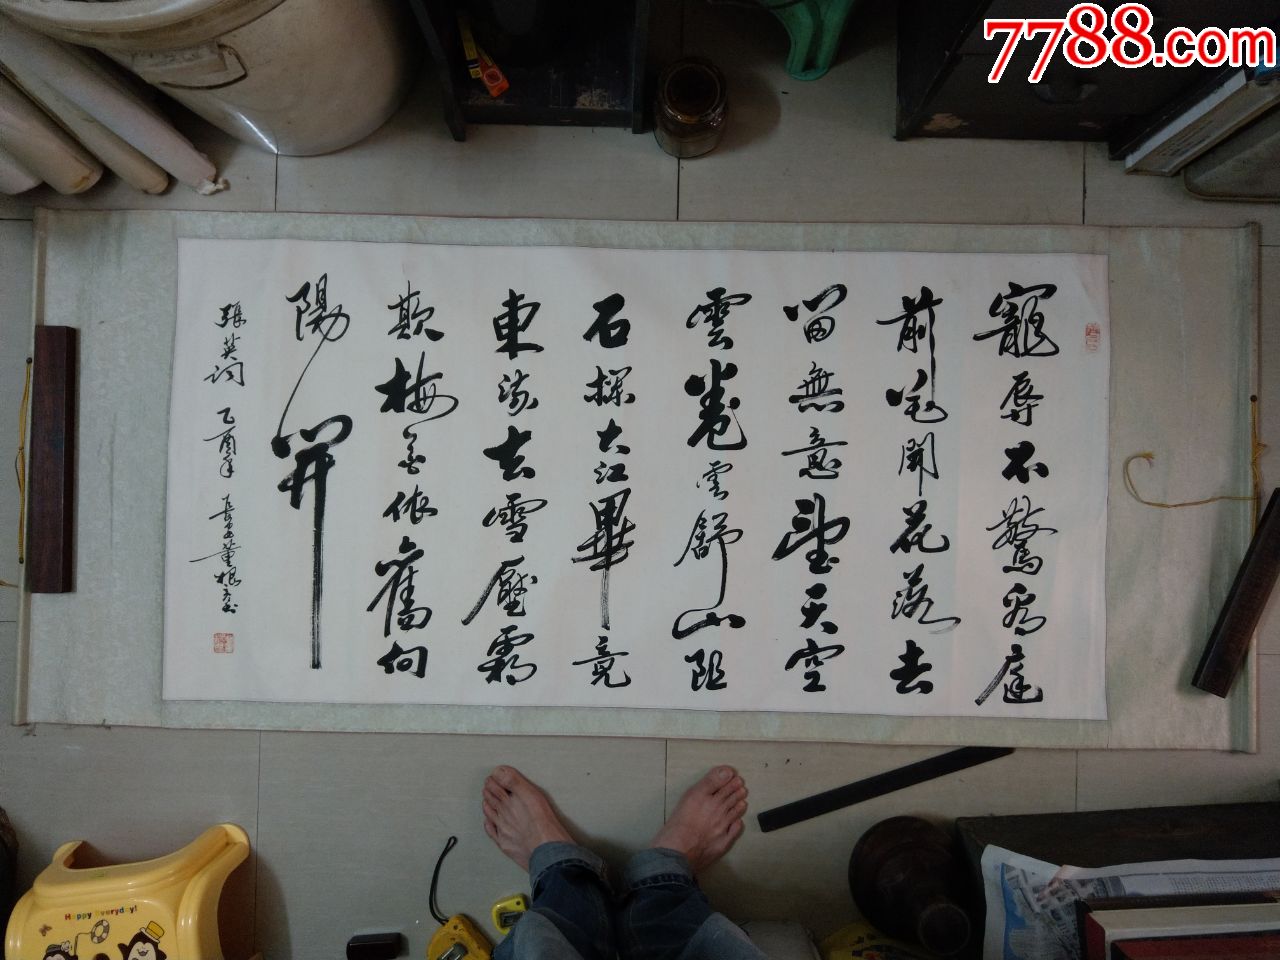 7788.com
寵辱不驚看庭
前花開花落去
留無意望天空
雲卷雲舒山阻
石攔大江畢竟
東流去雪壓霜
欺梅花依舊向
陽開
張英詞 乙酉年 董根書
Happy Everyday!